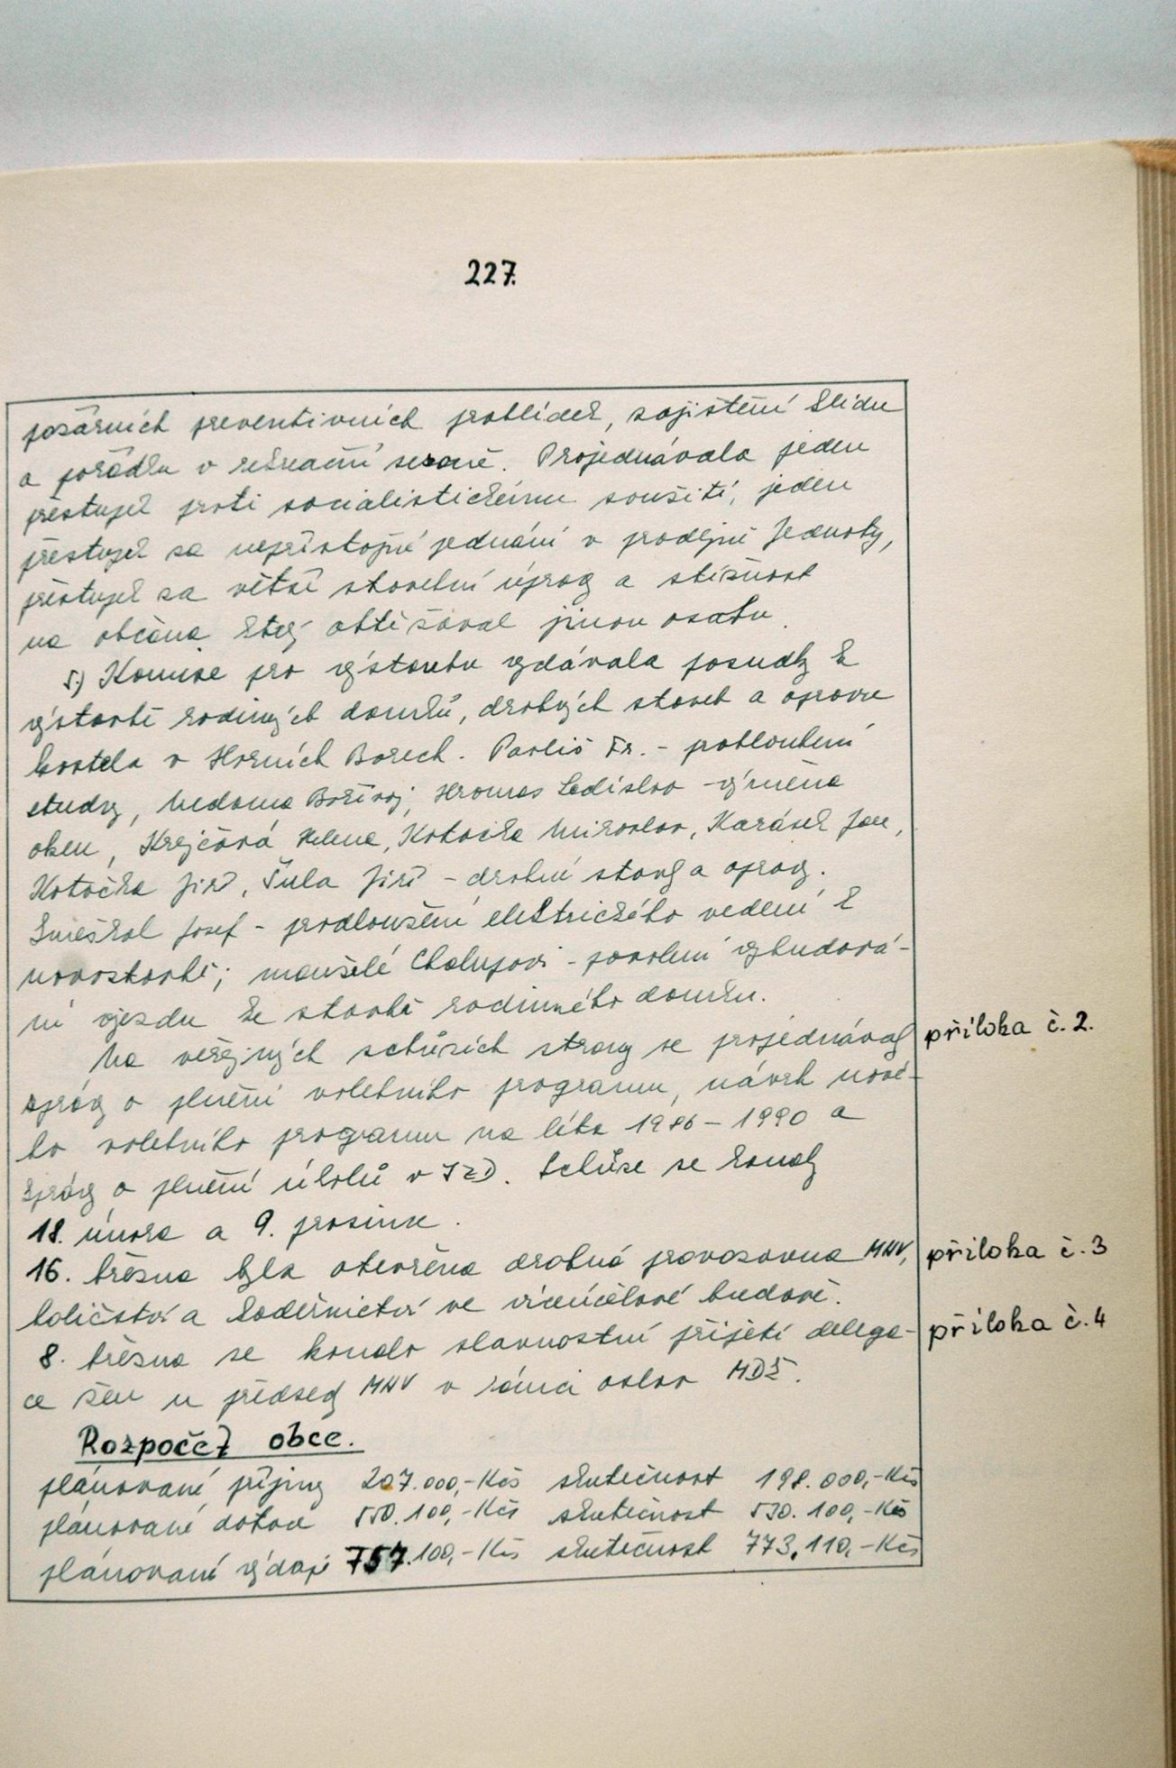 227.
požárních preventivních prohlídek, zajištění klidu
a pořádku v rekreační sezoně. Projednávala jeden
přestupek proti socialistickému soužití, jeden
přestupek za nepřístojné jednání v prodejně Jednoty,
přestupek za větší stavební úpravy a stížnost
na občana, který obtěžoval jinou osobu.
5.) Komise pro výstavbu vydávala posudky k
výstavbě rodinných domků, drobných staveb a opravu
kostela v Horních Borech. Pavliš Fr. - prohloubení
studny, Nedoma Bořivoj, Hromas Ladislav - výměna
oken, Krejčová Helena, Kotačka Miroslav, Karásek Jan,
Kotačka Jiří, Šula Jiří - drobné stavby a opravy.
Smejkal Josef - prodloužení elektrického vedení k
novostavbě; manželé Chalupovi - povolení vybudová-
ní vjezdu ke stavbě rodinného domku.
Na veřejných schůzích strany se projednávaly příloha č. 2.
zprávy o plnění volebního programu, návrh nové-
ho volebního programu na léta 1986 - 1990 a
zprávy o plnění úkolů v JZD. Schůze se konaly
18. února a 9. prosince.
16. března byla otevřena drobná provozovna MNV, příloha č. 3
holičství a kadeřnictví ve víceúčelové budově.
8. března se konalo slavnostní přijetí delega- příloha č. 4
ce žen u předsedy MNV v rámci oslav MDŽ.
Rozpočet obce.
plánované příjmy 207.000,-Kčs skutečnost 198.000,-Kčs
plánované dotace 550.100,-Kčs skutečnost 530.100,-Kčs
plánované výdaje 757.100,-Kčs skutečnost 773.110,-Kčs